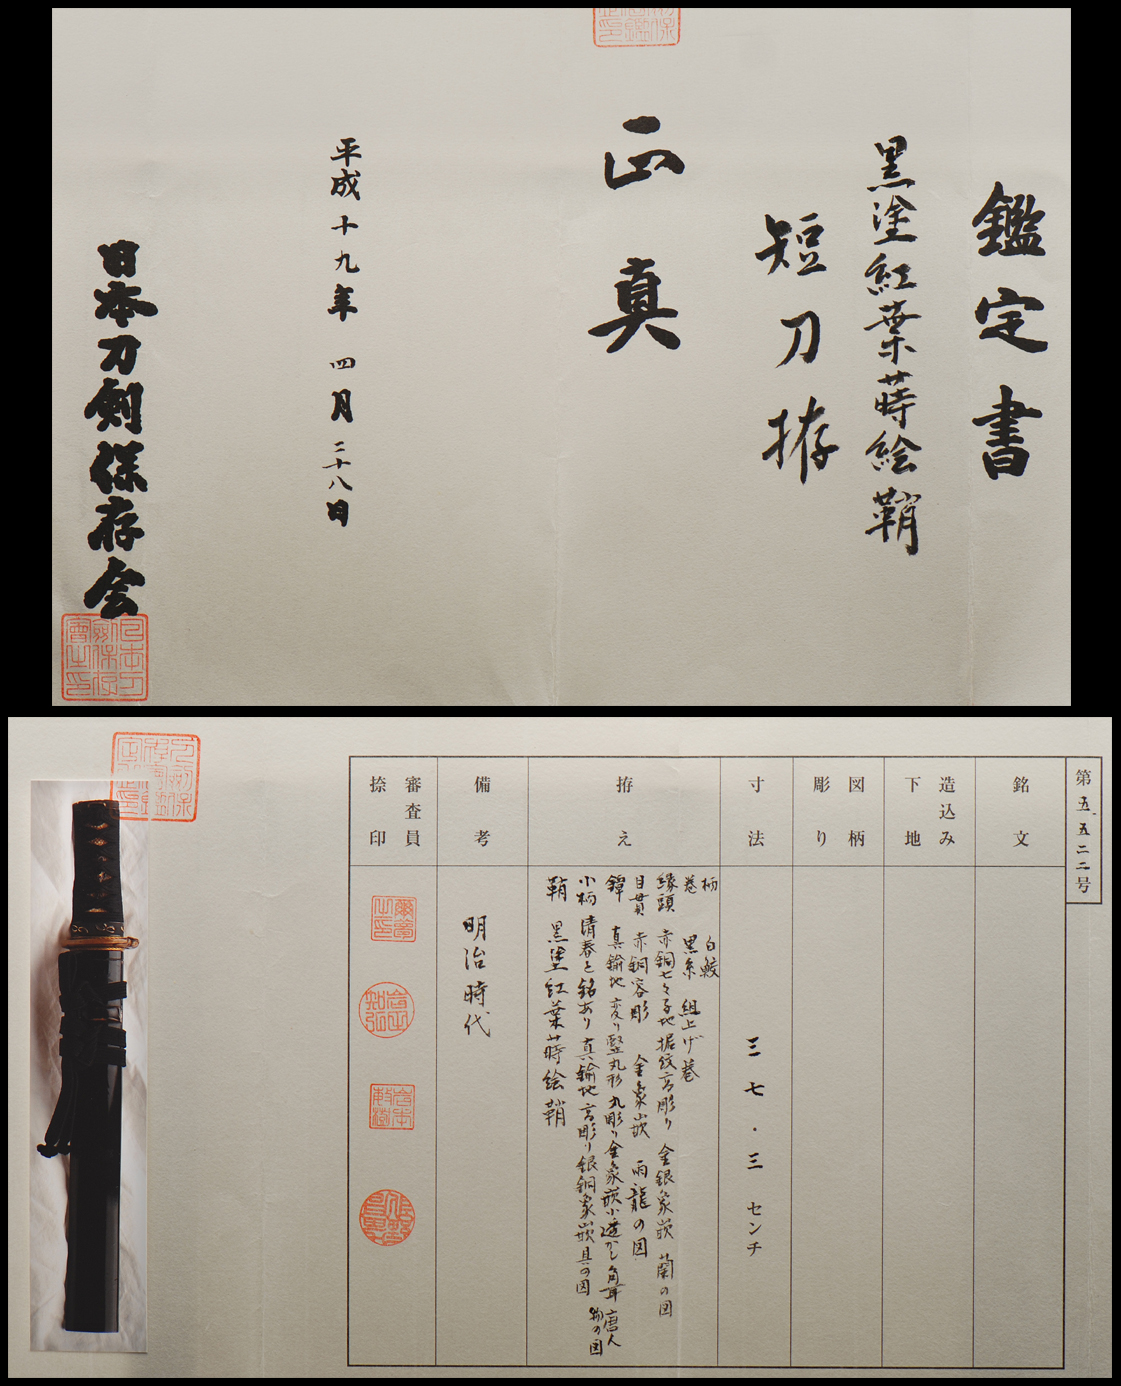 鑑定書
黒塗紅葉蒔絵鞘
短刀拵
正真
平成十九年 四月二十八日
日本刀剣保存会
第五五二二号
銘文
造込み
下地
図柄
彫り
寸法
三七・三 センチ
拵え
柄 白鮫
巻 黒糸 組上げ巻
縁頭 赤銅七々子地据紋高彫り 金銀象嵌 蘭の図
目貫 赤銅容彫 金象嵌 雨龍の図
鐔 真鍮地 変り竪丸形 丸彫り金象嵌小透かし角耳 唐人物の図
小柄 清春と銘あり 真鍮地高彫り銀銅象嵌具の図
鞘 黒塗紅葉蒔絵鞘
備考
明治時代
審査員
捺印